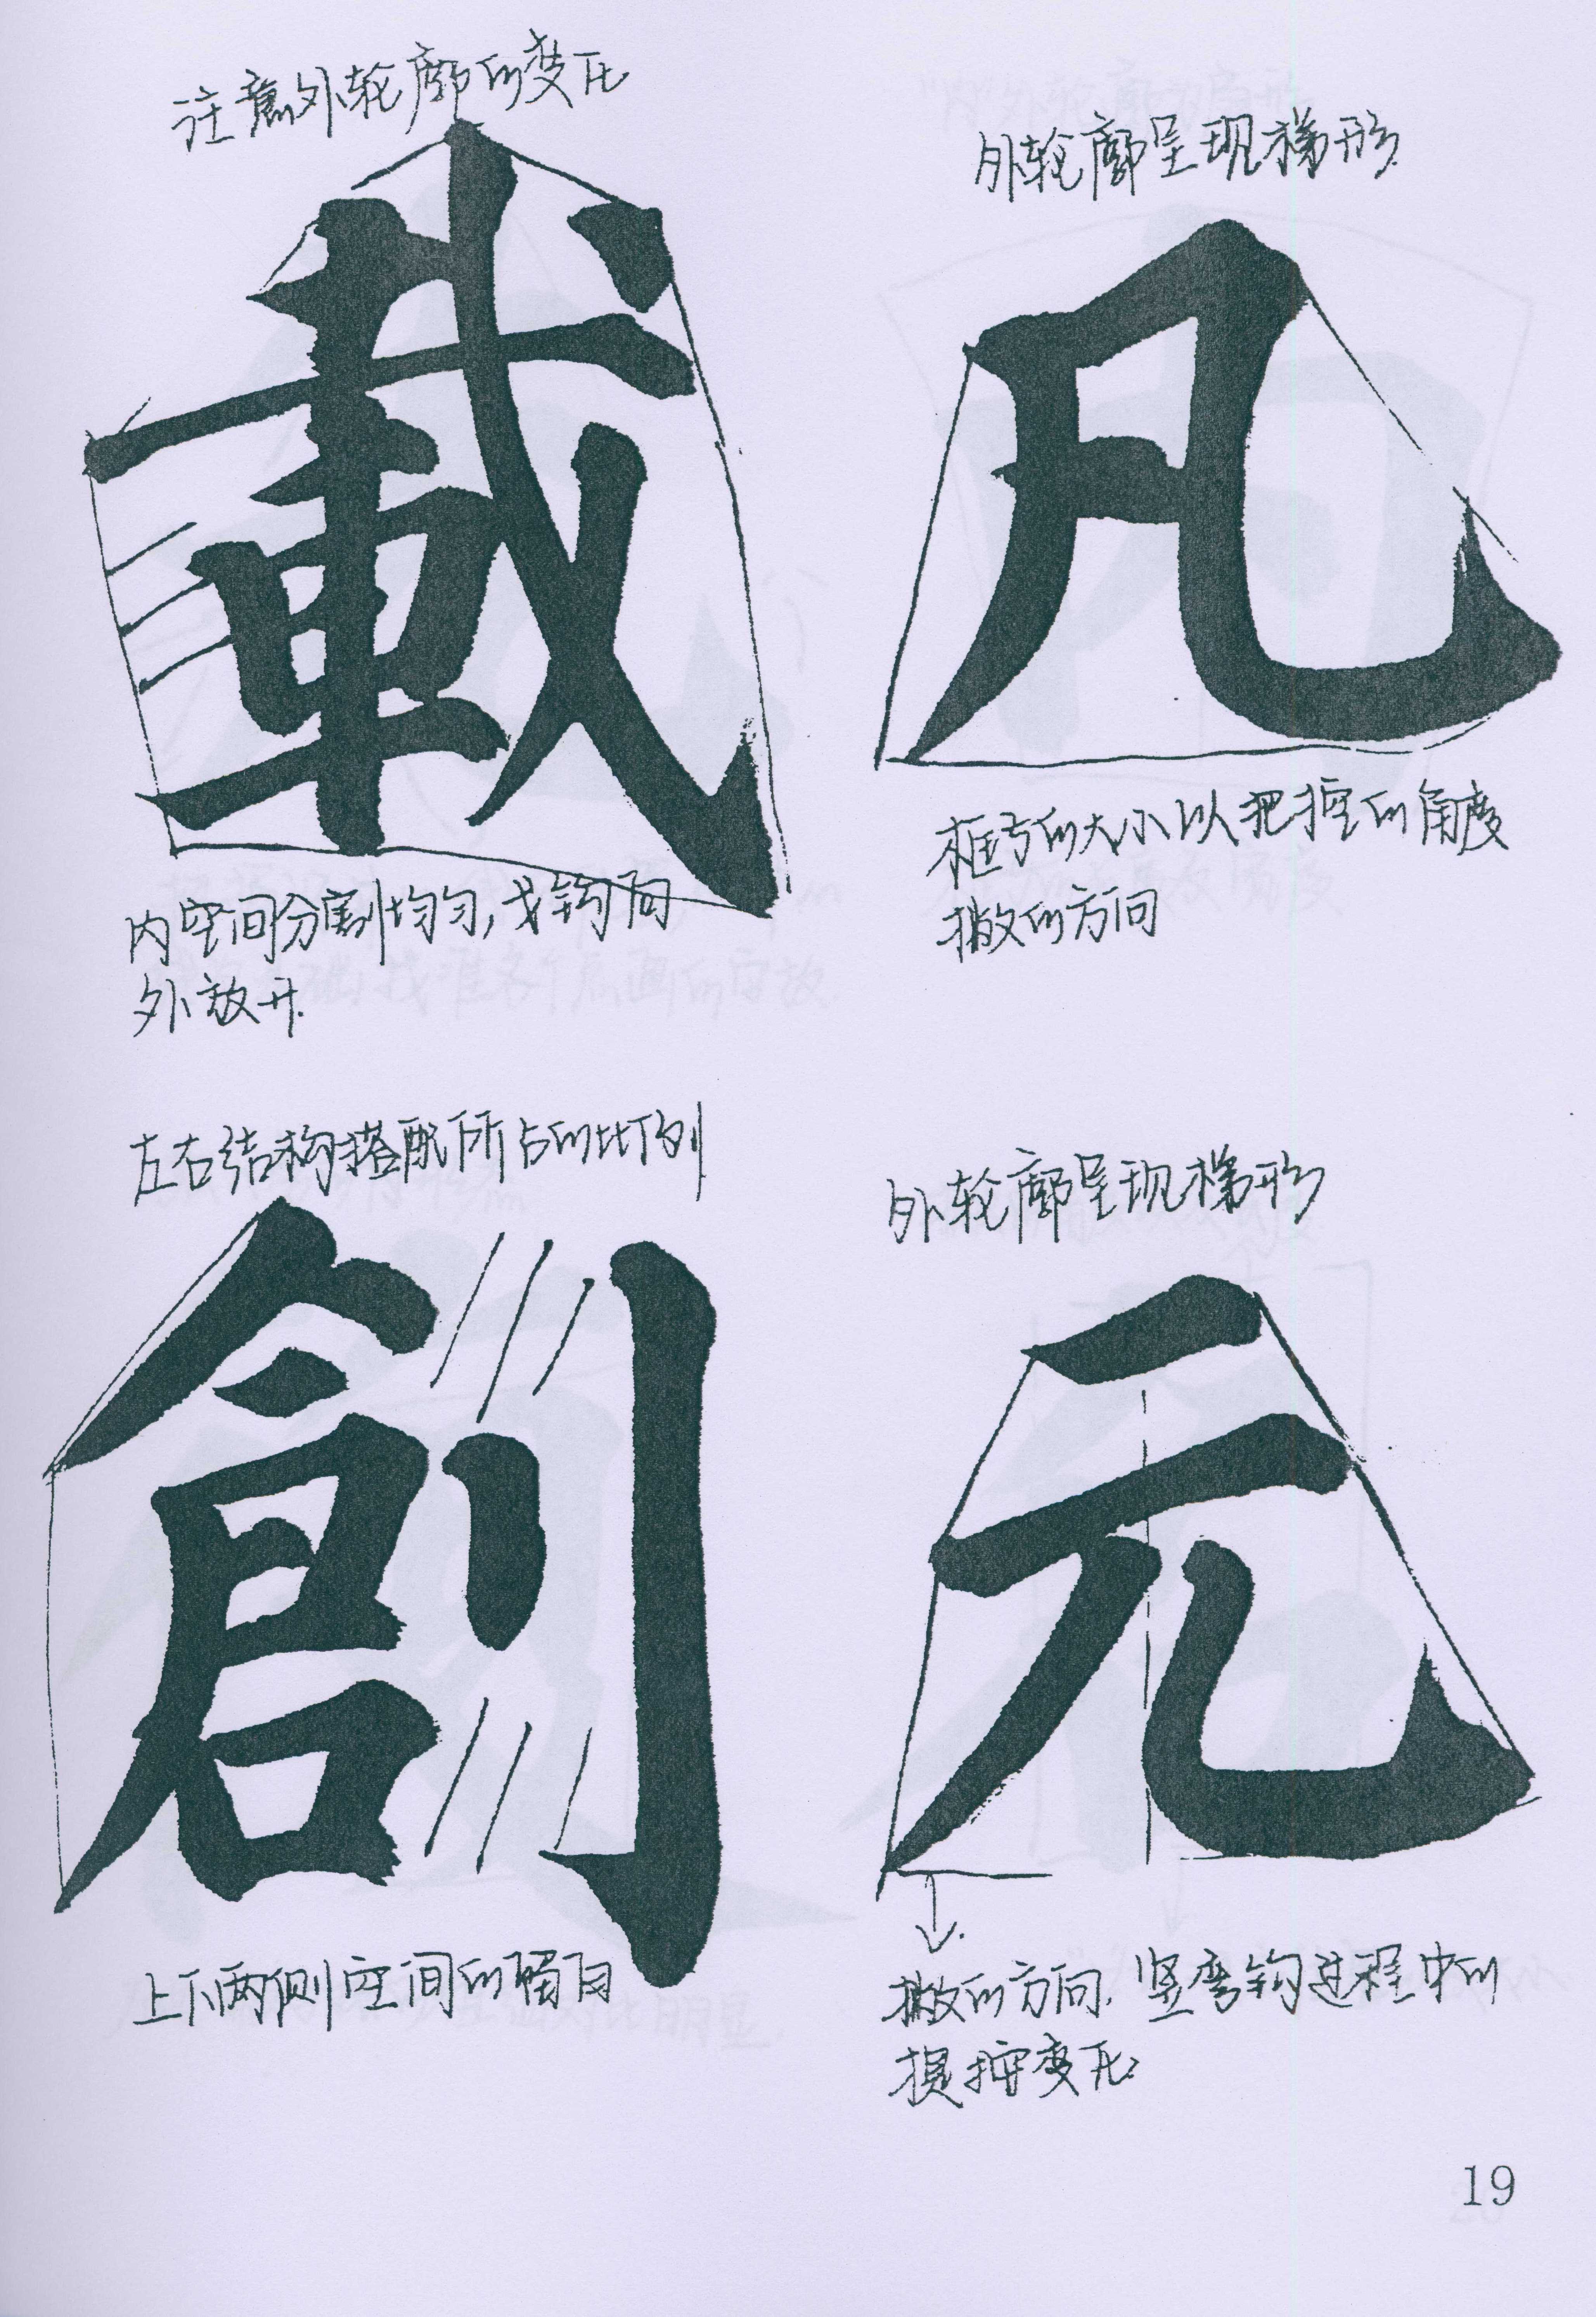 注意外轮廓的变化
載
内空间分割均匀,戈钩向
外放开.
外轮廓呈现梯形
凡
框与的大小以把控的角度
撇的方向
左右结构搭配所占的比例
創
上下两侧空间的留白
外轮廓呈现梯形
元
撇的方向.竖弯钩进程中的
提按变化
19